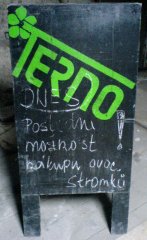 TERNO
DNES
Poslední
možnost
nákupu ovoc.
stromků
!